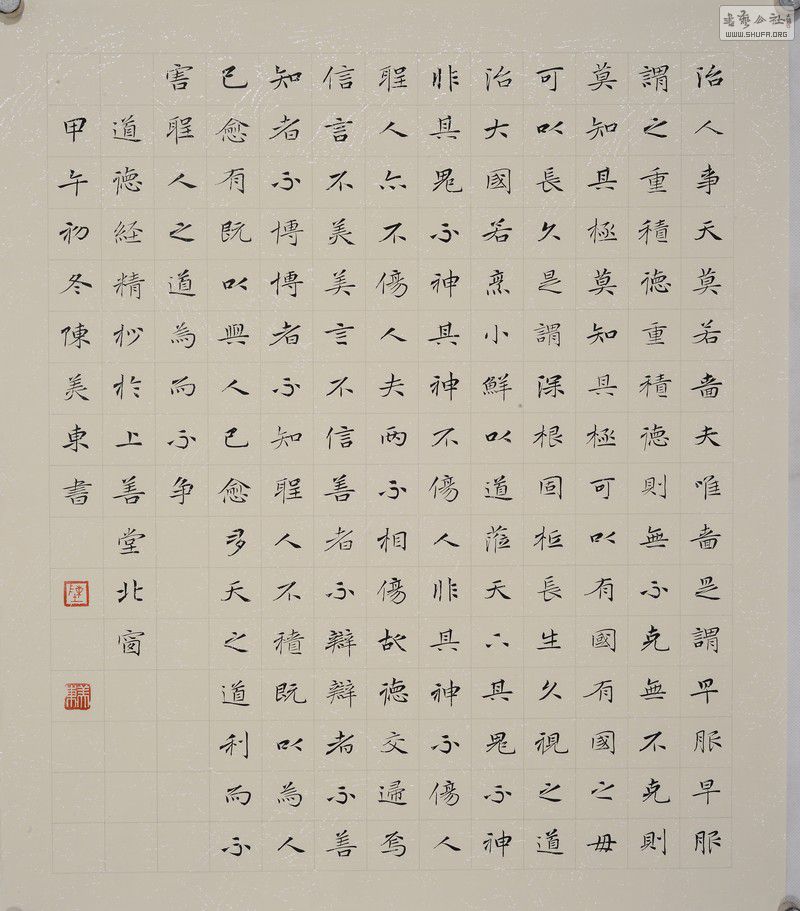 治人事天莫若嗇夫唯嗇是謂早服早服
謂之重積德重積德則無不克無不克則
莫知其極莫知其極可以有國有國之毋
可以長久是謂深根固柢長生久視之道
治大國若烹小鮮以道蒞天下其鬼不神
非其鬼不神其神不傷人非其神不傷人
聖人亦不傷人夫兩不相傷故德交歸焉
信言不美美言不信善者不辯辯者不善
知者不博博者不知聖人不積既以為人
已愈有既以與人已愈多天之道利而不
害聖人之道為而不爭
道德經精抄於上善堂北窗
甲午初冬陳美東書
書藝公社
WWW.SHUFA.ORG